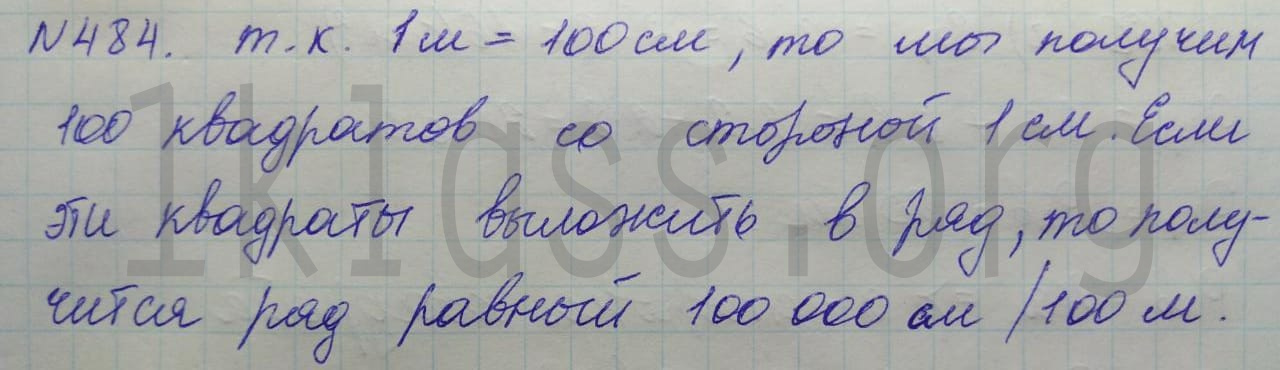 N484. т.к. 1м = 100см, то мы получим
100 квадратов со стороной 1см. Если
эти квадраты выложить в ряд, то полу-
чится ряд равный 100 000 см / 100 м.
1klass.org